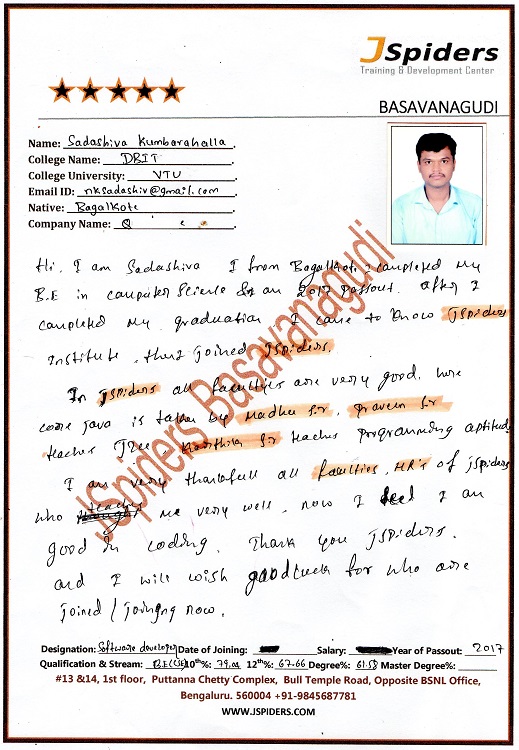 JSpiders
Training & Development Center
BASAVANAGUDI
Name: Sadashiva Kumbarahalla
College Name: DBIT
College University: VTU
Email ID: nksadashiv@gmail.com
Native: Bagalkote
Company Name: Q
Hi, I am Sadashiva I from Bagalkote, completed my
B.E in computer science & an 2017 passout. After I
completed my graduation I came to know JSpiders
institute, then joined JSpiders.
In JSpiders all faculties are very good, here
core java is taken by Madhu Sir, Praveen Sir
teaches J2EE, Karthik Sir teaches programming aptitude
I am very thankfull all faculties, HR's of jspiders
who teaches me very well. now I feel I am
good in coding. Thank you JSpiders.
and I will wish goodluck for who are
joined / joingng now.
JSpiders Basavanagudi
Designation: Software developer Date of Joining: Salary: Year of Passout: 2017
Qualification & Stream: B.E(CSE) 10th%: 79.04 12th%: 67.66 Degree%: 61.58 Master Degree%:
#13 &14, 1st floor, Puttanna Chetty Complex, Bull Temple Road, Opposite BSNL Office,
Bengaluru. 560004 +91-9845687781
WWW.JSPIDERS.COM